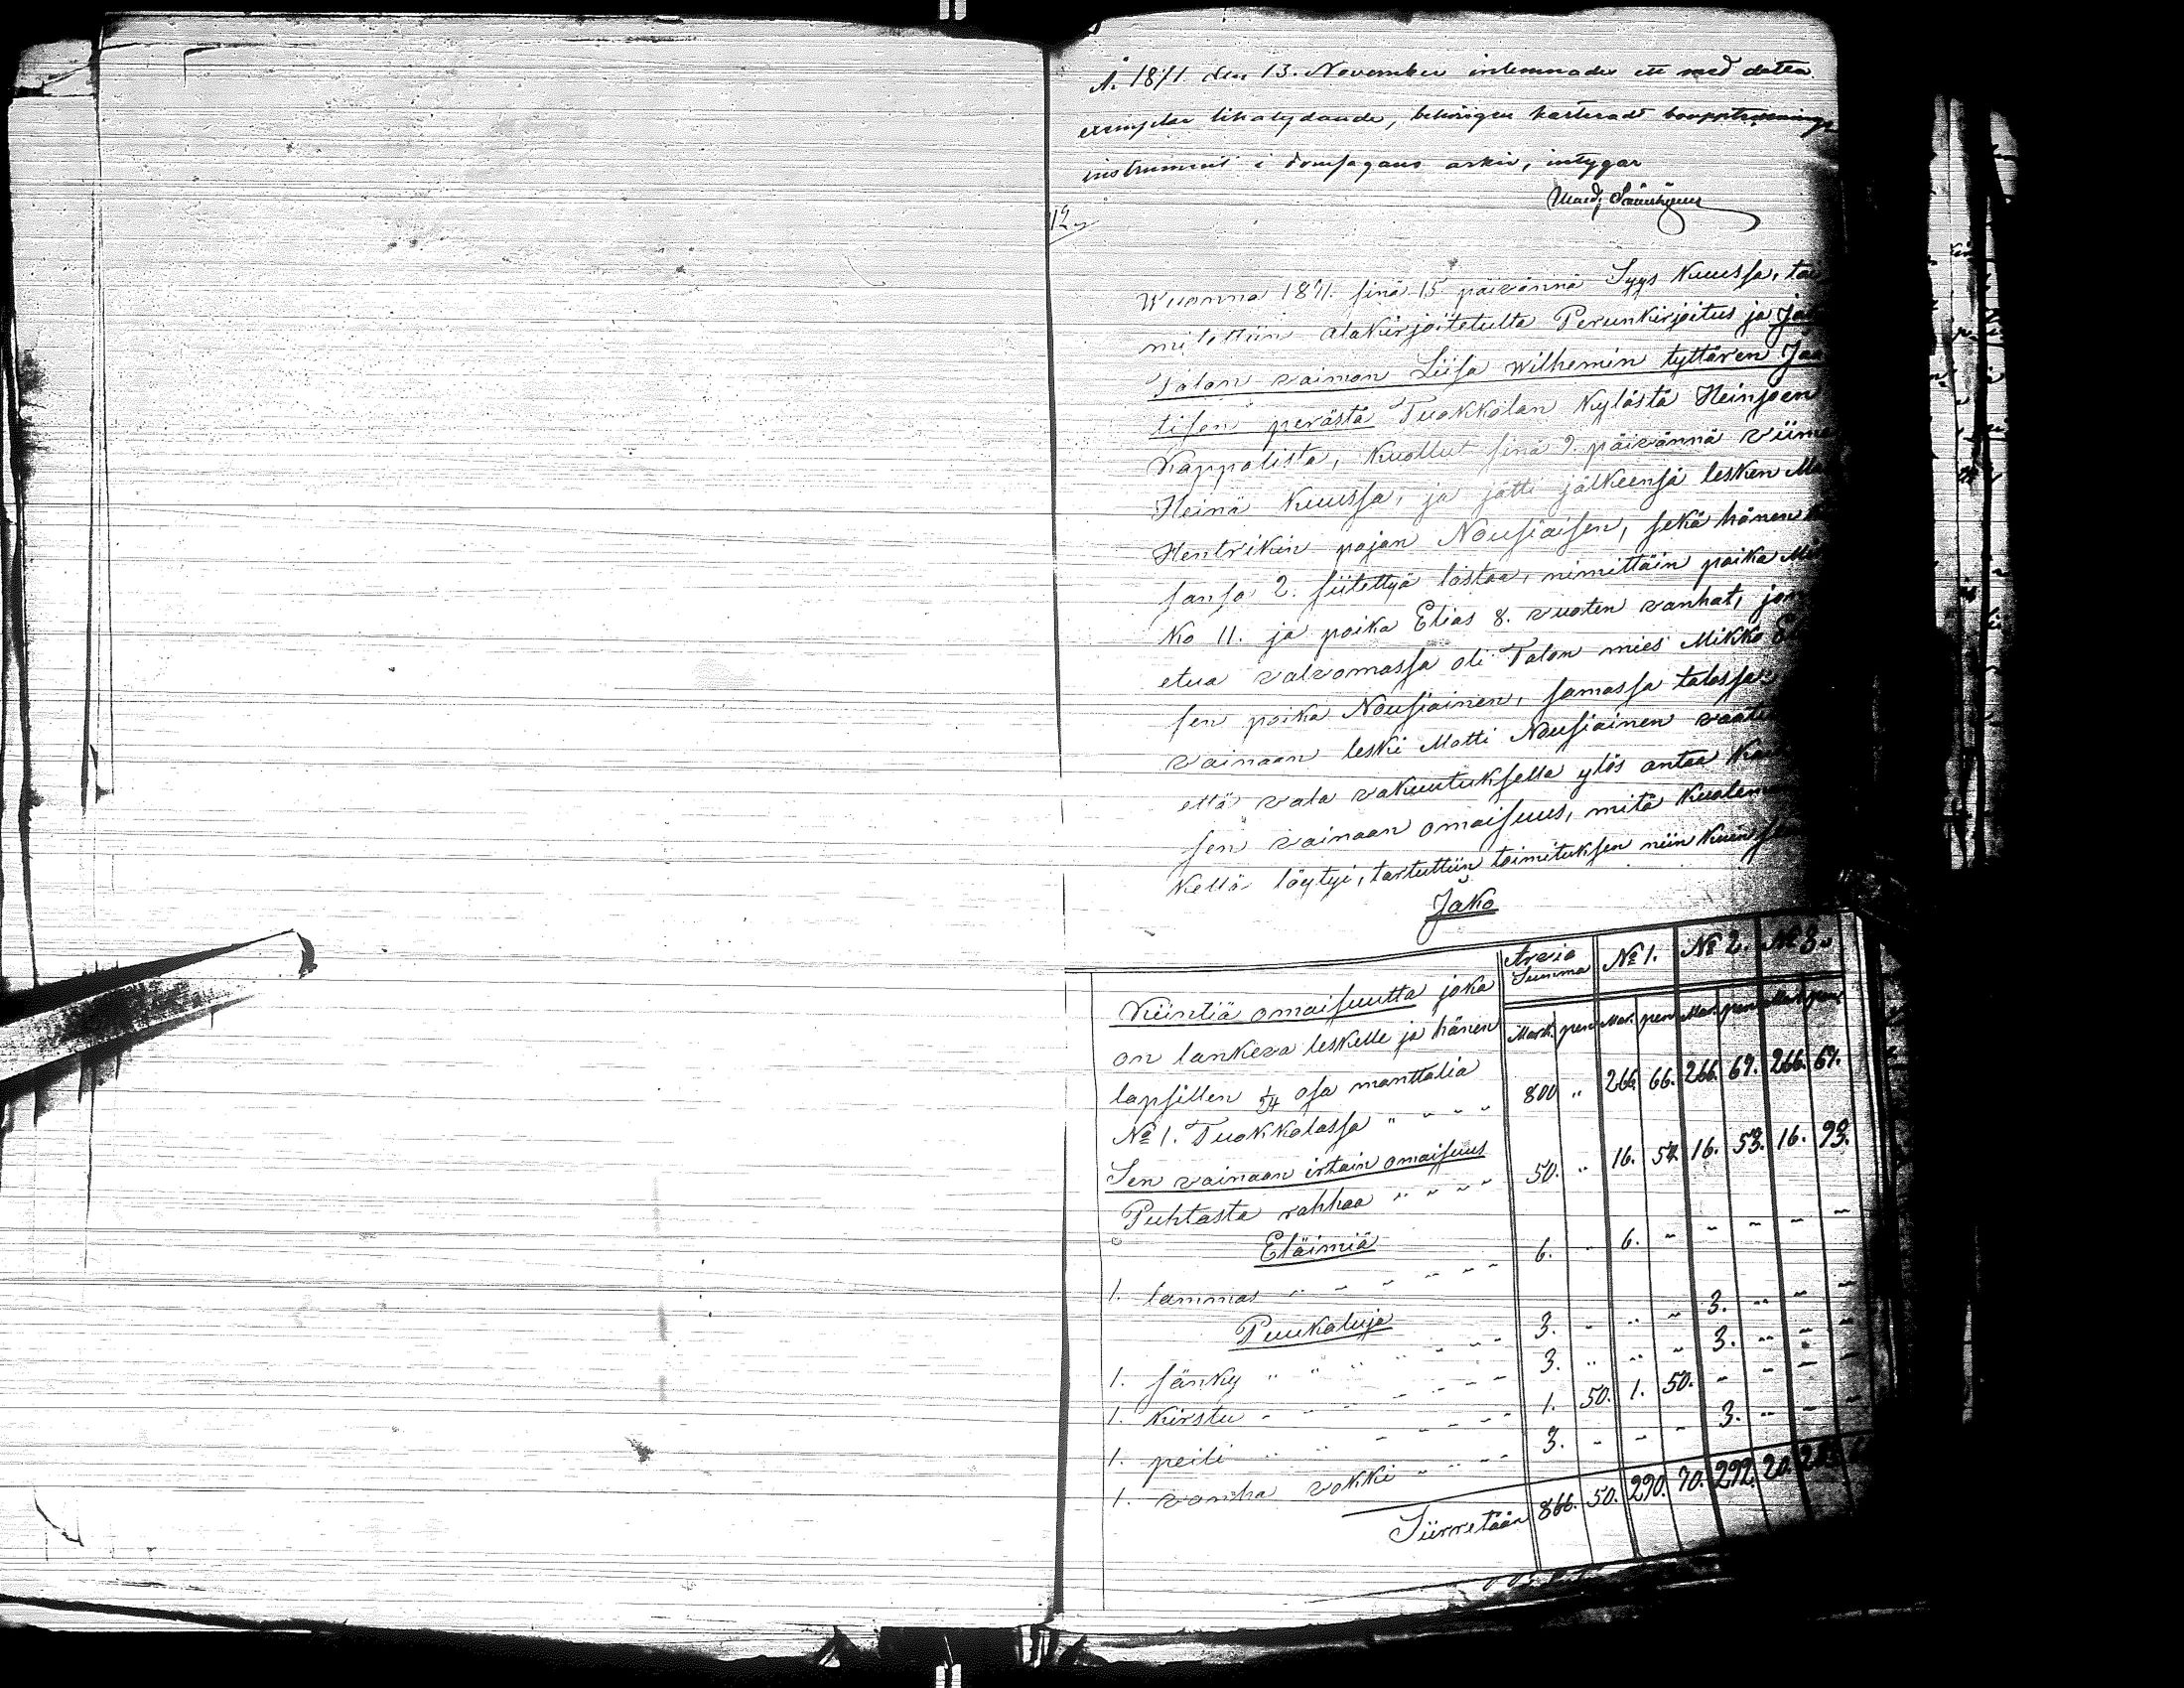 A. 1871 den 13. November inlemnades ett med detta
exemplar likalydande, behörigen karterad bouppteknings
instrument i domsagans arkiv, intygar
12
Wuonna 1871. sinä 15 päivännä Syys Kuussa, toi
mitettiin alakirjoitetulta Perunkirjoitus ja
Talon vaimon Liisa Wilhemin tyttären
tisen perästä Tuokkolan Kylästä Heinjoen
Kappelista, Kuollut sinä 9. päivännä viime
Heinä Kuussa, ja jätti jälkeensä lesken
Hentrikin pojan Nousiaisen, sekä hänen
sansa 2. siitettyä lasta, nimittäin poika Mik
Ko 11. ja poika Elias 8. vuoten vanhat,
etua valvomassa oli Talon mies Mikko
sen poika Nousiainen, samassa talossa
vainaan leski Matti Nousiainen
että vala vakuutuksella ylös antaa
sen vainaan omaisuus, mitä Kuolem
Kellä löytyi, tartuttiin toimituksen niin Kuin
Jako
Arvio Summa № 1. № 2. № 3.
Mark. pen Mar. pen Mar. pen
Kiintiä omaisuutta joka
on lankeva leskelle ja hänen
lapsillen 1/24 osa manttalia
№ 1. Tuokkolassa " " " " 800 " 266. 66. 266. 67. 266. 67.
Sen vainaan irtain omaisuus
Puhtasta rahhaa " " " " 50. " 16. 54. 16. 53. 16. 93.
Eläimiä
1. lammas " " " " " " 6. " 6. " " " " "
Puukaluja
1. sänky " " " " " " 3. " " " 3. " " "
1. Kirstu " " " " " " 3. " " " 3. " " "
1. peili " " " " " " 1. 50. 1. 50. " " " "
1. vanha vokki " " " " 3. " " " 3. " " "
Siirretään 866. 50. 290. 70. 292. 20.